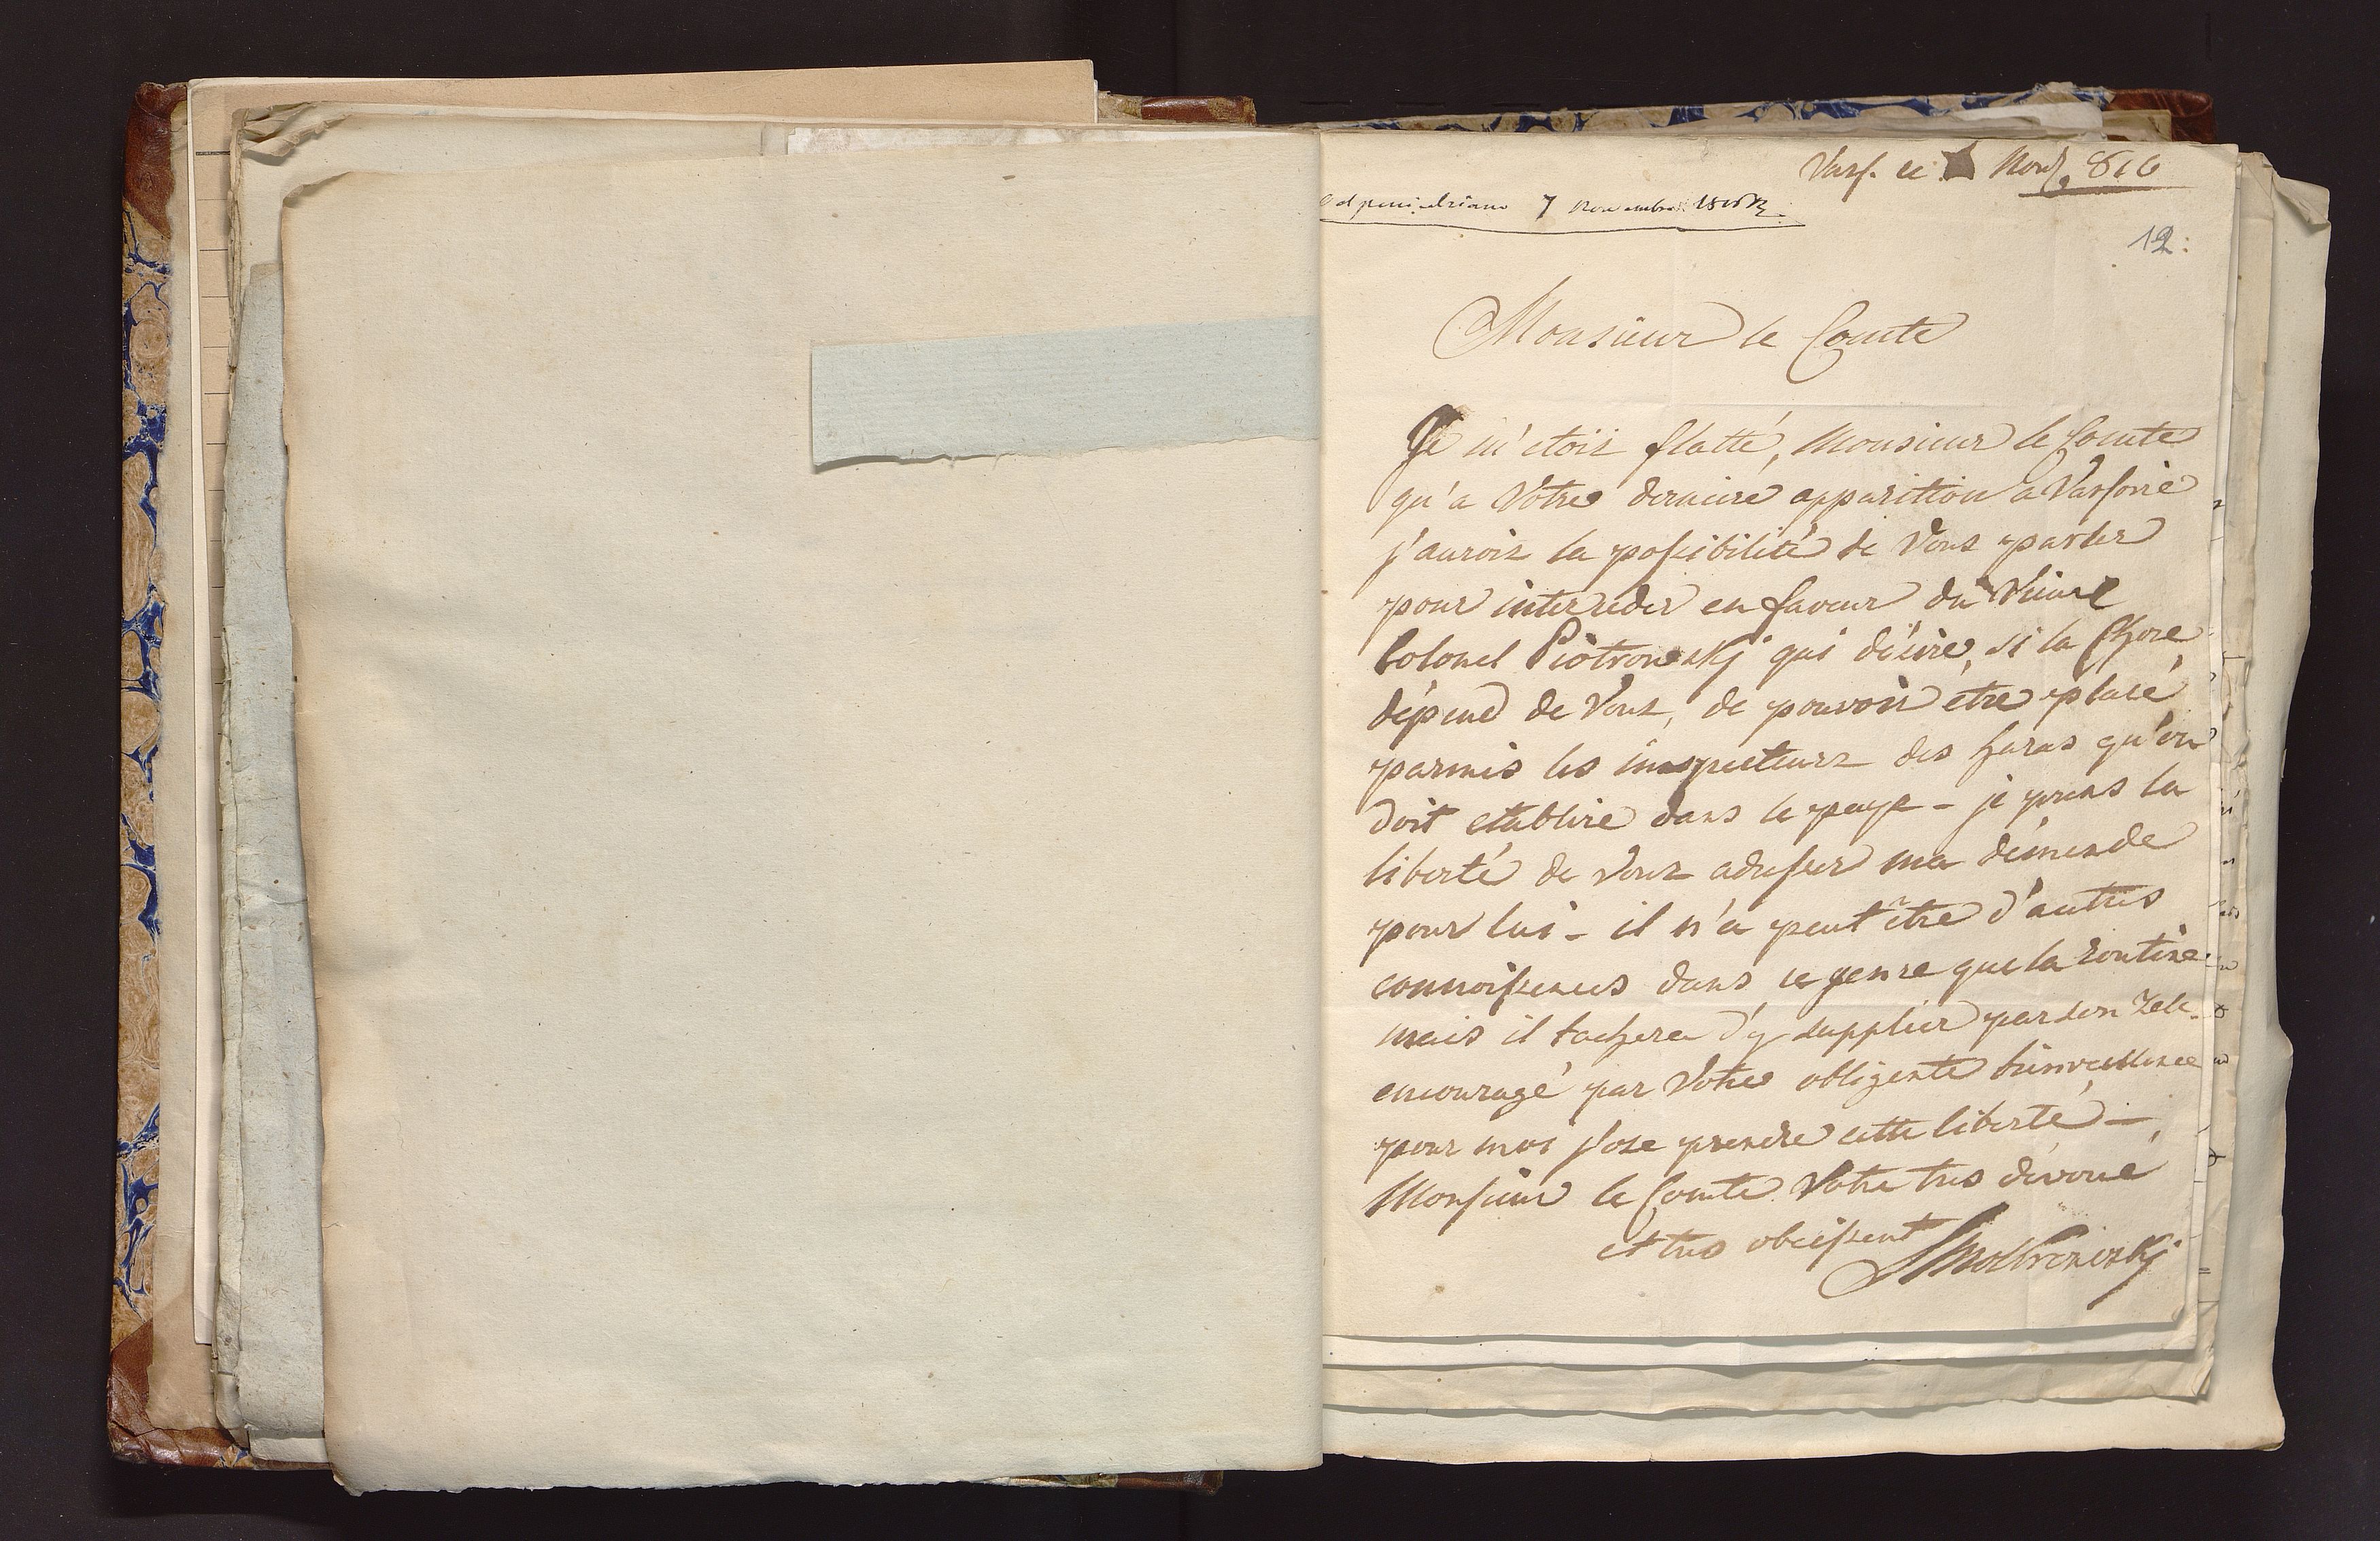 Vars. ce Novb. 816
Odpowiedziano 7 Novembra
12.
Monsieur le Comte
Je m'etois flatté, Monsieur le Comte
qu'a Votre derniere apparition a Varsovie
j'aurois la possibilité de Vous parler
pour interceder en faveur du Vieux
Colonel Piotrowskj qui désire, si la Chose
dépend de Vous, de pouvoir étre placé
parmis les inspecteurs des haras qu'on
doit etablire dans le pays - je prens la
liberté de Vous adresser ma démende
pour lui - il n'a peut être d'autres
connoissences dans ce genre que la routine
mais il tachera d'y supplier par son zele
encouragé par Votre obligente bienveillence
pour moi j'ose prendre cette liberté -
Monsieur le Comte Votre tres dévoué
et tres obeissent